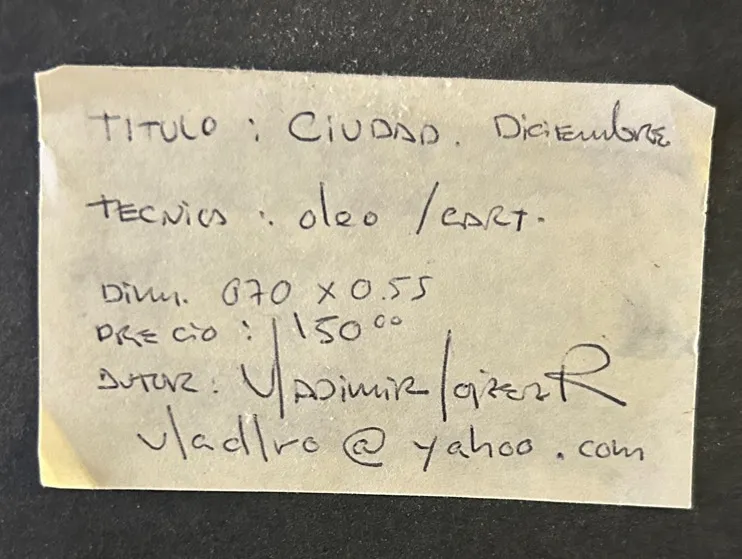 TITULO : CIUDAD. DiciEmbRE
TECNICA : oleo / CART.
Dim. 070 x 0.55
PRECIO : 150 00
AUTOR : VlADimiR R
vladlro @ yahoo . com